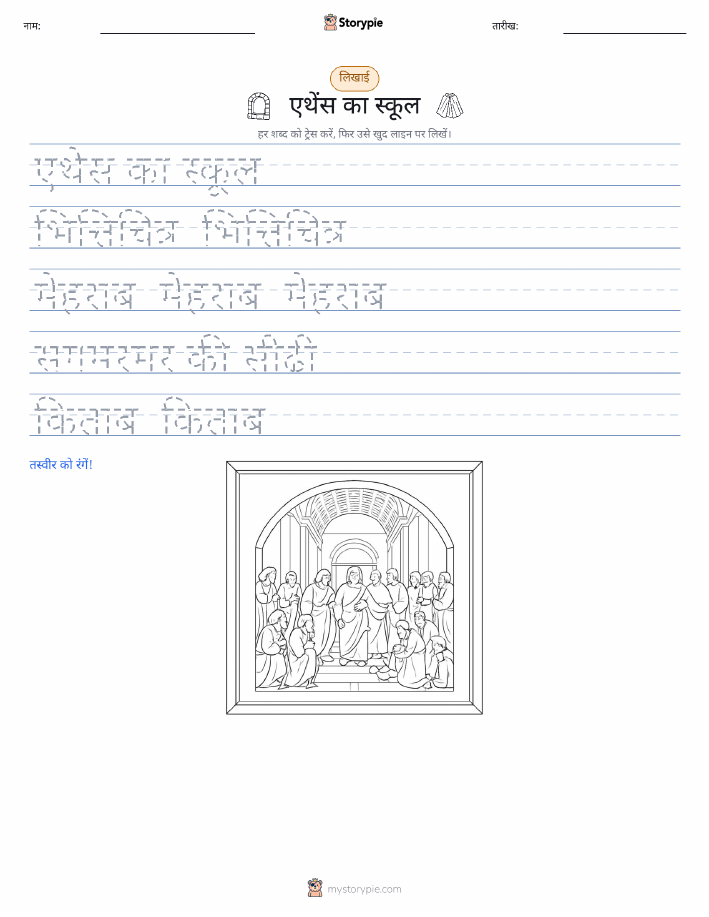 नाम:
Storypie
तारीख:
लिखाई
एथेंस का स्कूल
हर शब्द को ट्रेस करें, फिर उसे खुद लाइन पर लिखें।
एथेंस का स्कूल
भित्तिचित्र भित्तिचित्र
मेहराब मेहराब मेहराब
संगमरमर की सीढ़ी
किताब किताब
तस्वीर को रंगें!
mystorypie.com